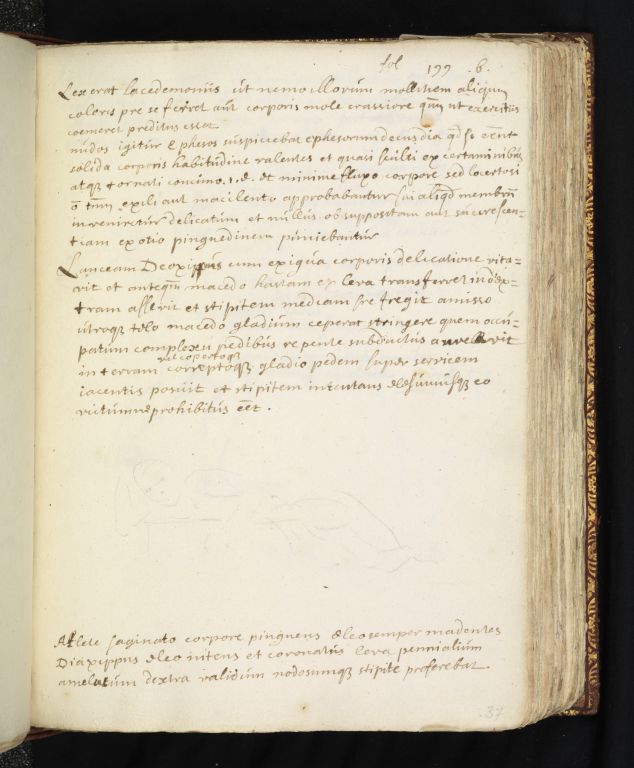 fol 199 .b.
Lex erat lacedemoniis ut nemo illorum mollitiem aliquam
coloris pre se ferret aut corporis mole crassiore quam ut exercitiis
coemeret preditus esset
nudos igitur Ephoros suspiciebat ephororum decus dia qd si eent
solida corporis habitudine valentes et quasi sculti ex certaminibus
atque tornati concimo .i.d. et minime fluxo corpore sed locertosi
exili aut macilento approbabantur sui aliqd membrum
inveniretur delicatum et nullus ob suppositam aut sucrescen-
tiam ex otio pinguedinem puniebantur
Lanceam Deoxippus cum exigua corporis declicatione vita-
vit et antequam macedo hastam ex leva transferret in dex-
tram assilvit et stipitem mediam fregit amisso
utroque telo macedo gladium ceperat stringere quem occu-
patum complexu pedibus repente subductus a
vel copertoque
in terram correptoque gladio pedem super servicem
iacentis posuit et stipitem intentans
victum prohibitus eet .
Atlete saginato corpore pingues oleo semper madentes
Diaxippus oleo nitens et coronatus leva
amelatum dextra validum nodosumque stipite preferebat
37